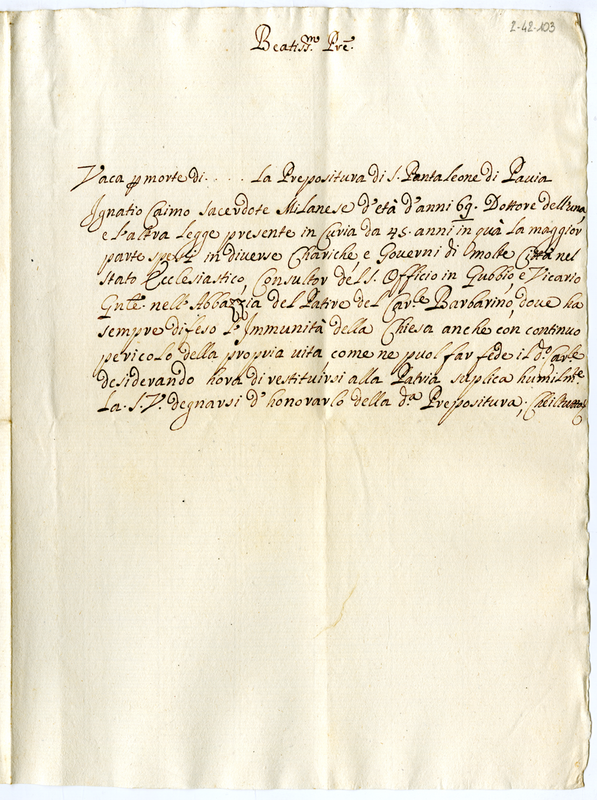 2-42-103
Beatiss.mo Pre.
Vaca p morte di . . . . La Prepositura di S. Pantaleone di Pavia
Ignatio Caimo sacerdote Milanese d'età d'anni 69. Dottore dell'una
e l'altra Legge presente in Curia da 45. anni in quà la maggior
parte spesi in diverse Chariche e Governi di molte Città nel
stato Ecclesiastico, Consultor del S. Officio in Gubbio, e Vicario
Gnle. nell'Abbazzia del Patire del Car.le Barbarino, dove ha
sempre difeso l'Immunità della Chiesa anche con continuo
pericolo della propria vita come ne puol far fede il d.o Car.le
desiderando hora di restituirsi alla Patria suplica humilm.te
La S. V. degnarsi d'honorarlo della d.a Prepositura,